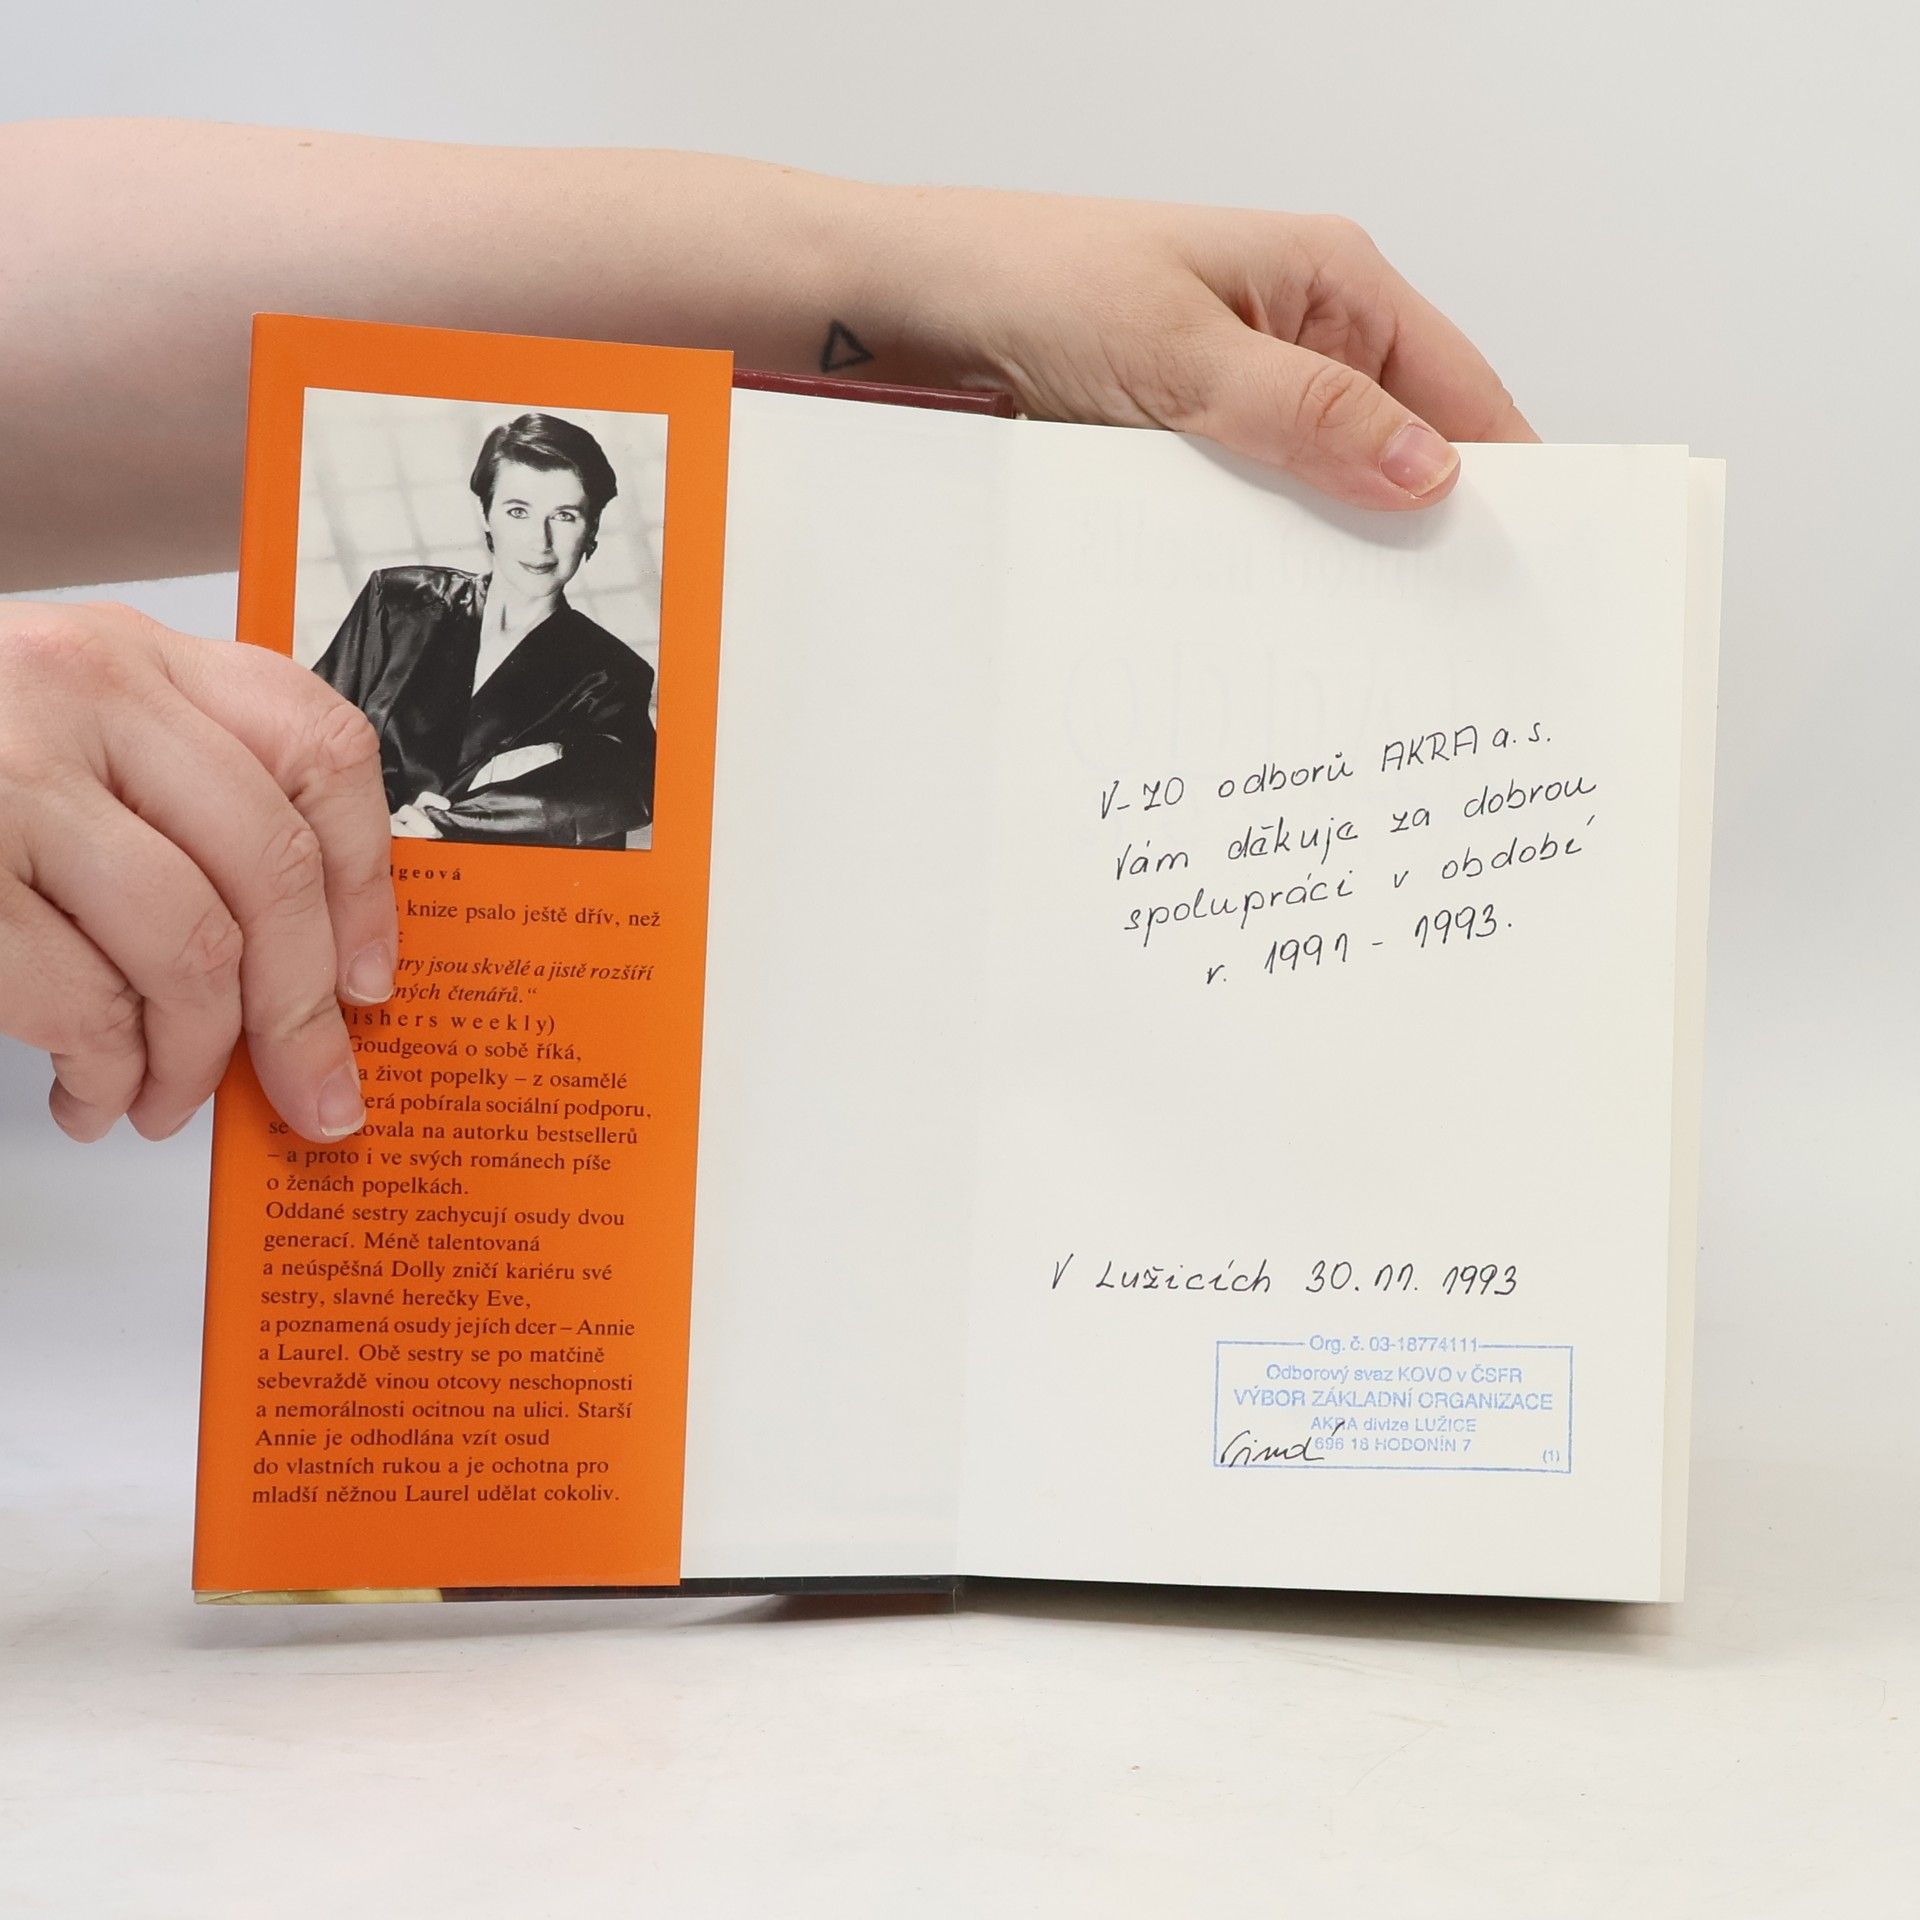 geová
knize psalo ještě dřív, než
try jsou skvělé a jistě rozšíří
ných čtenářů."
ishers weekly)
Goudgeová o sobě říká,
a život popelky – z osamělé
erá pobírala sociální podporu,
se ovala na autorku bestsellerů
– a proto i ve svých románech píše
o ženách popelkách.
Oddané sestry zachycují osudy dvou
generací. Méně talentovaná
a neúspěšná Dolly zničí kariéru své
sestry, slavné herečky Eve,
a poznamená osudy jejích dcer – Annie
a Laurel. Obě sestry se po matčině
sebevraždě vinou otcovy neschopnosti
a nemorálnosti ocitnou na ulici. Starší
Annie je odhodlána vzít osud
do vlastních rukou a je ochotna pro
mladší něžnou Laurel udělat cokoliv.
V-ZO odborů AKRA a.s.
Vám děkuje za dobrou
spolupráci v období
r. 1991 - 1993.
V Lužicích 30.11. 1993
Org. č. 03-18774111
Odborový svaz KOVO v ČSFR
VÝBOR ZÁKLADNÍ ORGANIZACE
AKRA divize LUŽICE
696 18 HODONÍN 7
(1)